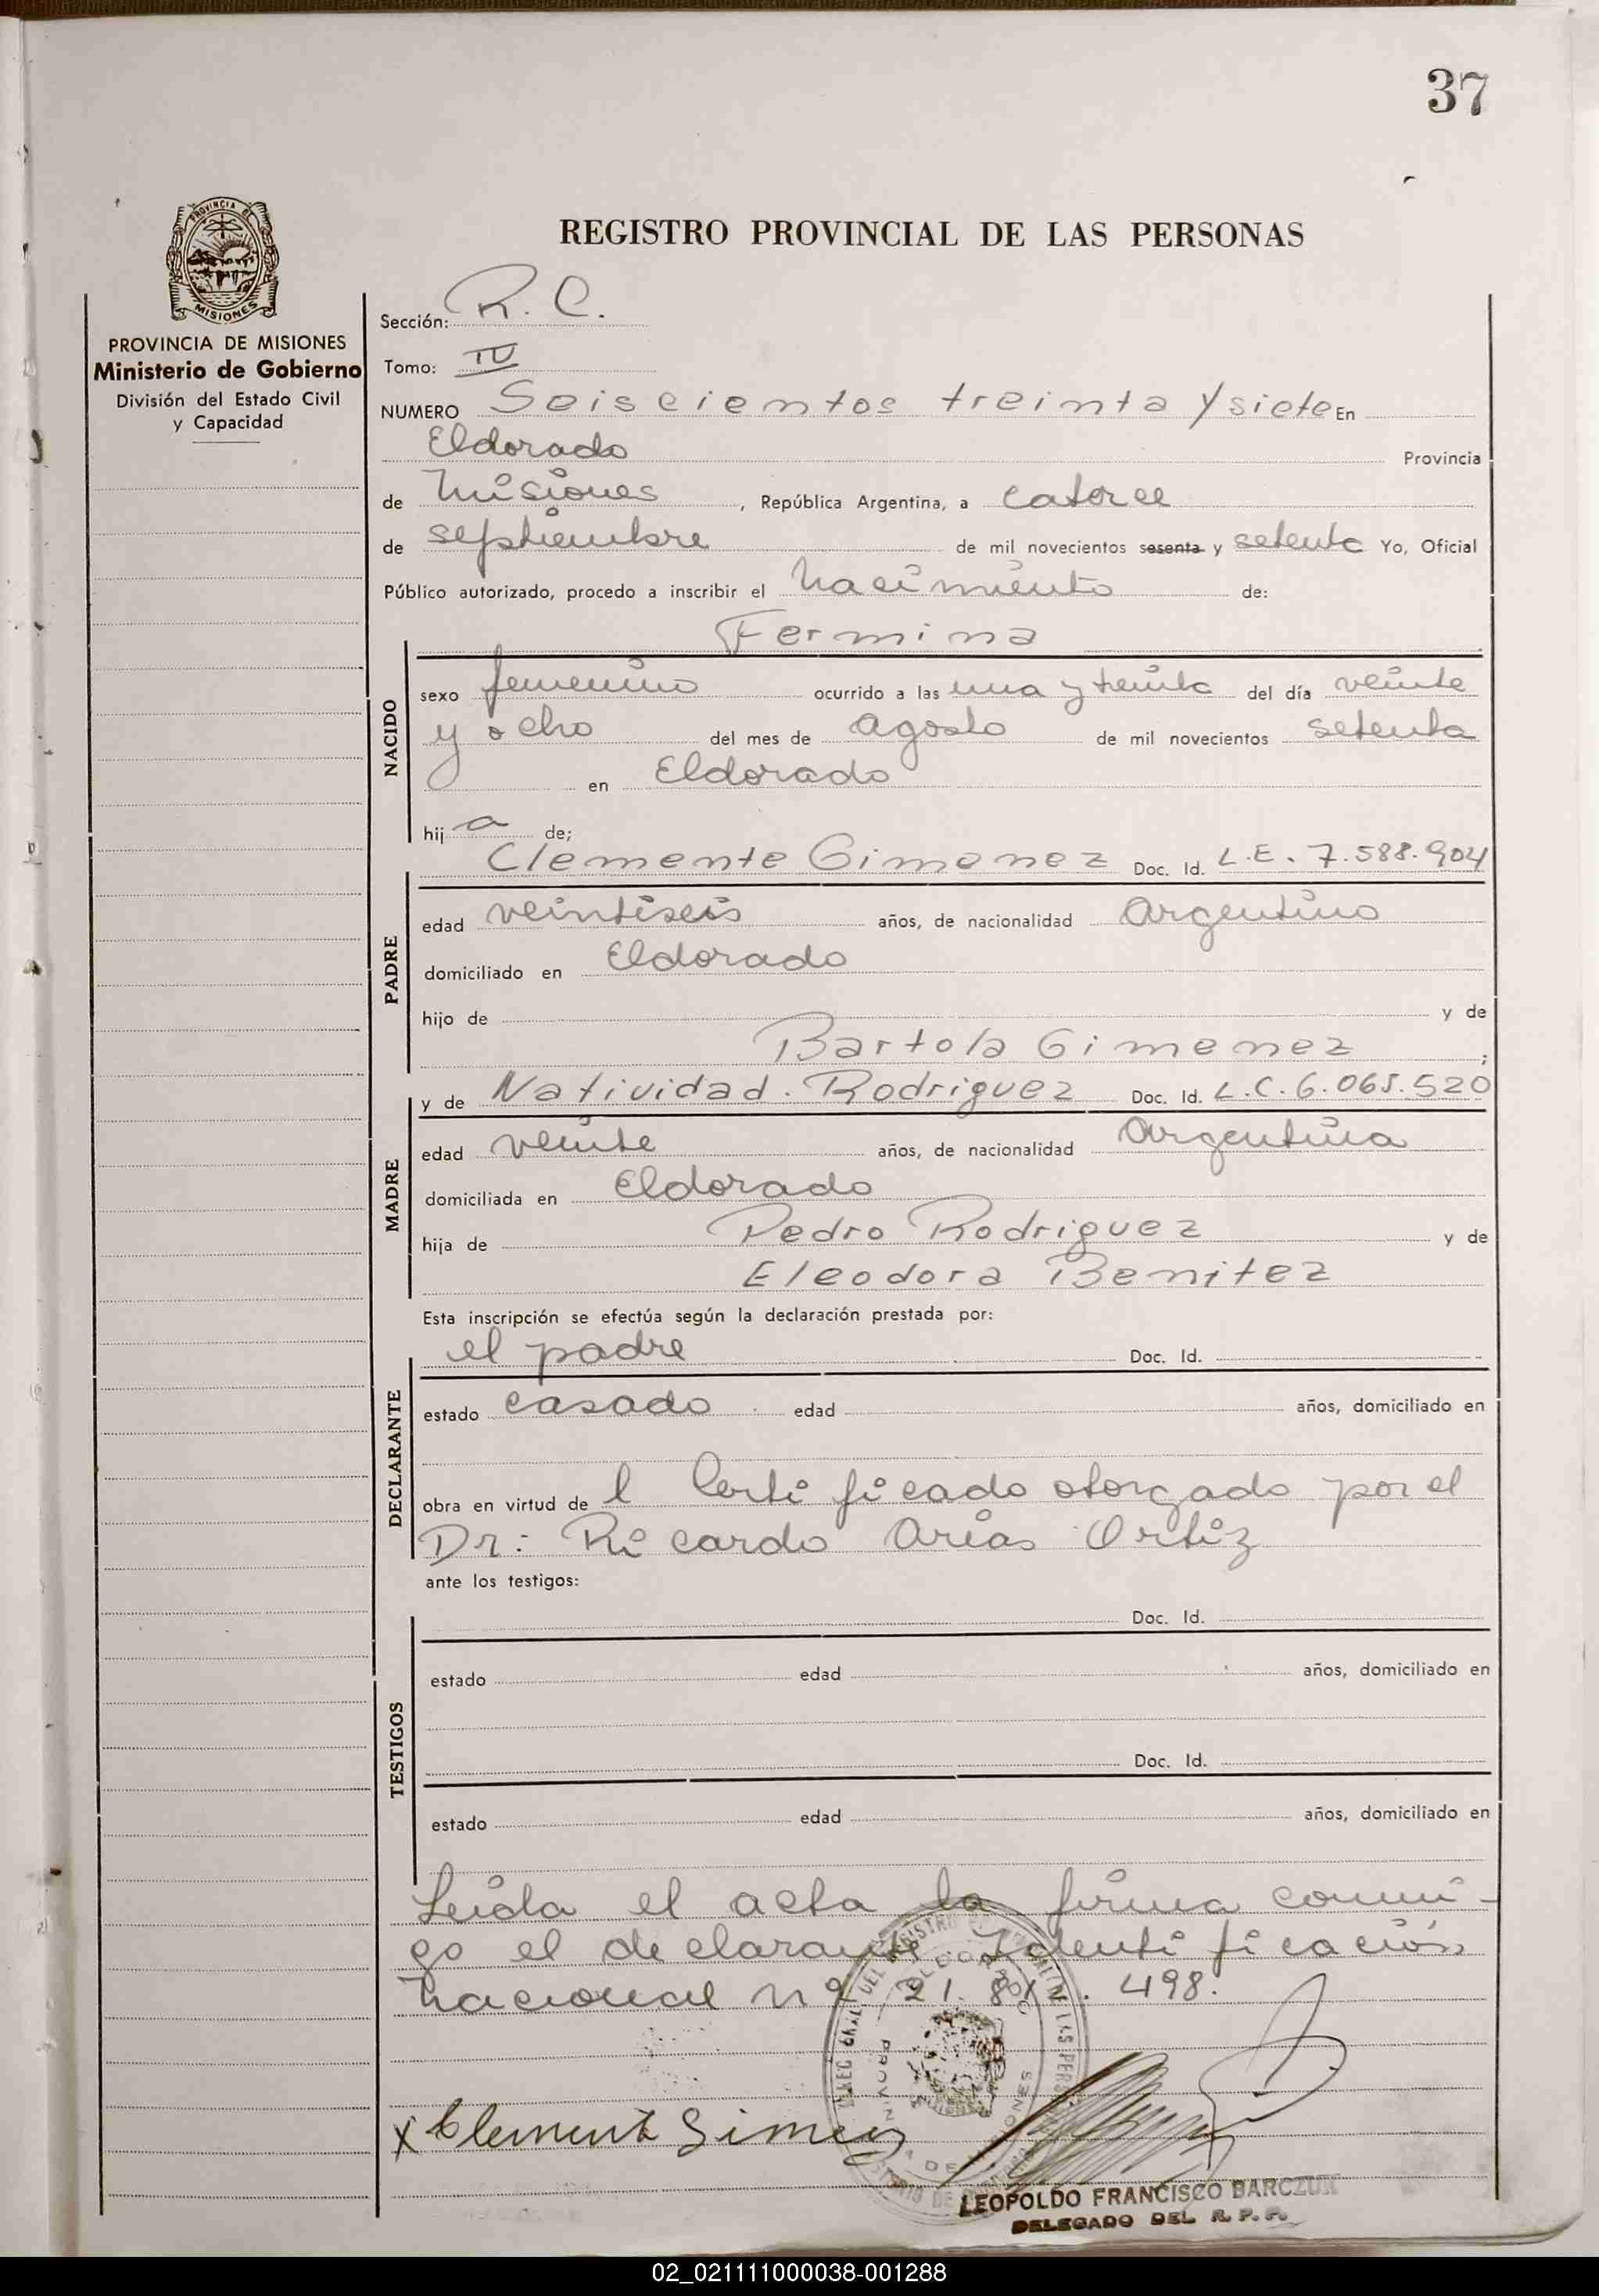 37
PROVINCIA DE
MISIONES
REGISTRO PROVINCIAL DE LAS PERSONAS
PROVINCIA DE MISIONES
Ministerio de Gobierno
División del Estado Civil
y Capacidad
Sección: R. C.
Tomo: IV
NUMERO Seiscientos treinta y siete En
Eldorado Provincia
de Misiones, República Argentina, a catorce
de septiembre de mil novecientos sesenta y setenta Yo, Oficial
Público autorizado, procedo a inscribir el nacimiento de:
Fermina
NACIDO
sexo femenino ocurrido a las una y treinta del día veinte
y ocho del mes de agosto de mil novecientos setenta
en Eldorado
hij a de;
Clemente Gimenez Doc. Id. L.E. 7.588.904
PADRE
edad veintiseis años, de nacionalidad Argentino
domiciliado en Eldorado
hijo de y de
Bartola Gimenez ;
y de Natividad. Rodriguez Doc. Id. L.C. 6.065.520
MADRE
edad veinte años, de nacionalidad Argentina
domiciliada en Eldorado
hija de Pedro Rodriguez y de
Eleodora Benitez
Esta inscripción se efectúa según la declaración prestada por:
el padre Doc. Id.
DECLARANTE
estado casado edad años, domiciliado en
obra en virtud de l Certificado otorgado por el
Dr: Ricardo Arias Ortiz
ante los testigos:
Doc. Id.
TESTIGOS
estado edad años, domiciliado en
Doc. Id.
estado edad años, domiciliado en
Leida el acta la firma conmi-
go el declarante. Identificación
nacional nº 21. 498.
x Clemente Gimenez
LEOPOLDO FRANCISCO BARCZUK
DELEGADO DEL R. P. P.
02_021111000038-001288